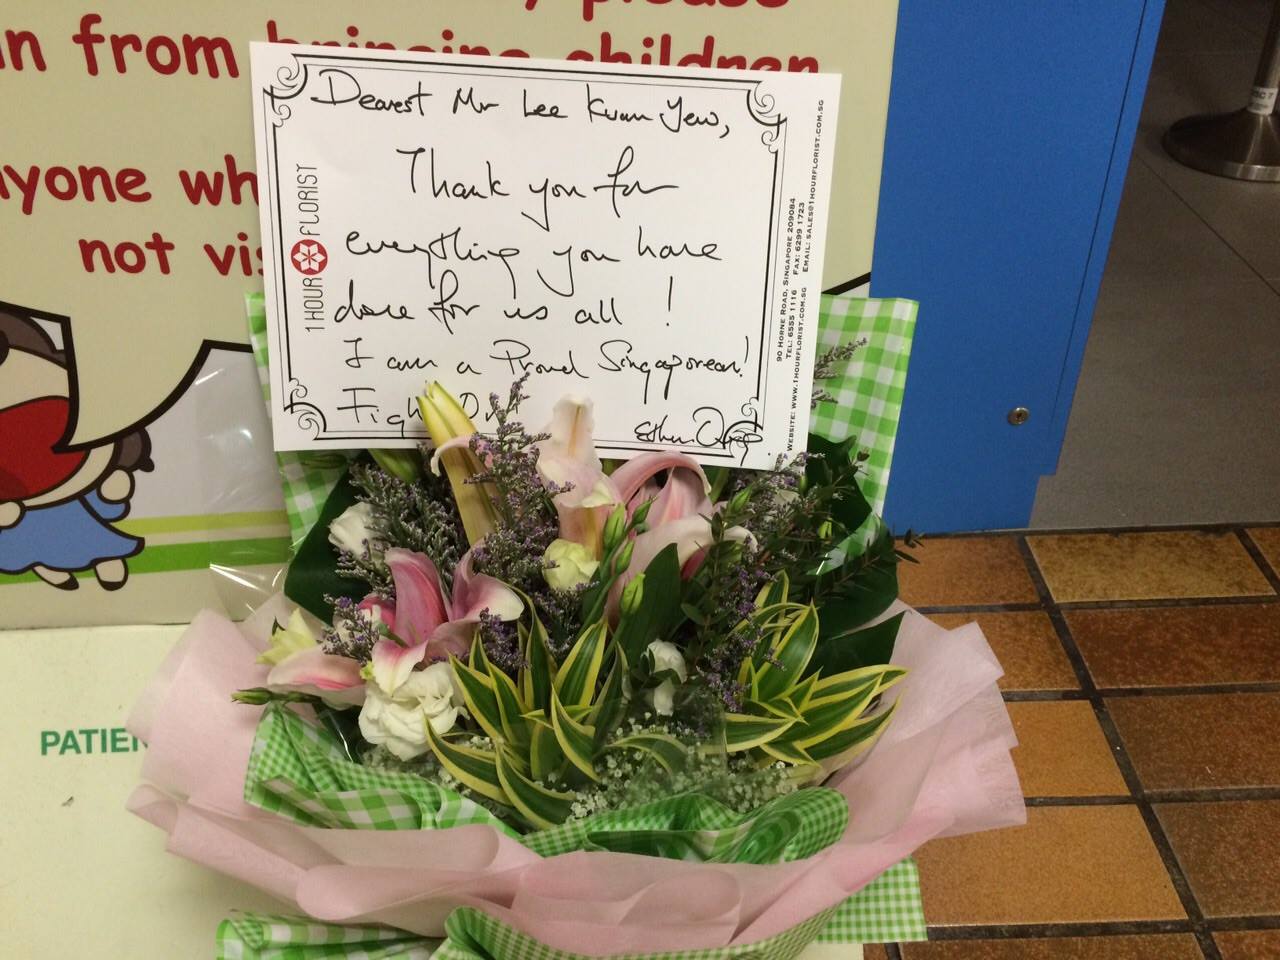 please
n from bringing children
yone wh
not vis
Dearest Mr Lee Kuan Yew,
Thank you for
everything you have
done for us all !
I am a Proud Singaporean!
Fight On
1 HOUR FLORIST
90 HORNE ROAD, SINGAPORE 209084
TEL: 6555 1116 FAX: 6299 1723
WEBSITE: WWW.1HOURFLORIST.COM.SG EMAIL: SALES@1HOURFLORIST.COM.SG
PATIEN